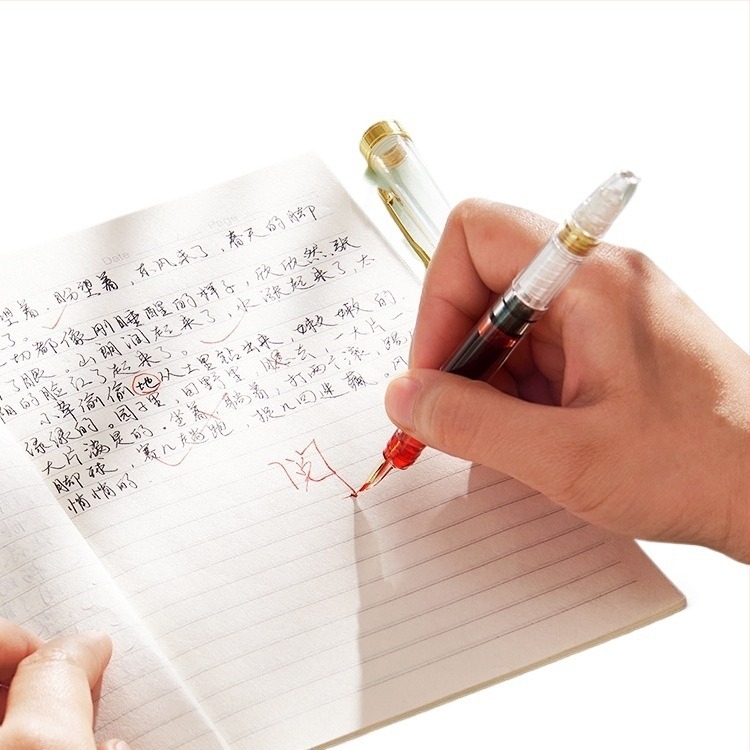 Date Page
望着，盼望着，东风来了，春天的脚
了。一切都像刚睡醒的样子，欣欣然张
了眼。山朗润起来了，水涨起来了，太
阳的脸红了起来了。
小草偷偷地从土里钻出来，嫩嫩的，
绿绿的。园子里，田野里，瞧去，一大片一
大片满是的。坐着，躺着，打两个滚，踢
脚球，赛几趟跑，捉几回迷藏。风
悄悄的
阅